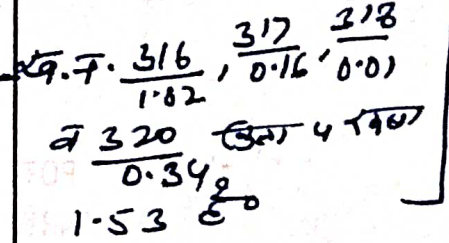 ख.नं. 316/1.02, 317/0.16, 318/0.01
व 320/0.34 कित्ता 4 रकबा
1.53 हे०